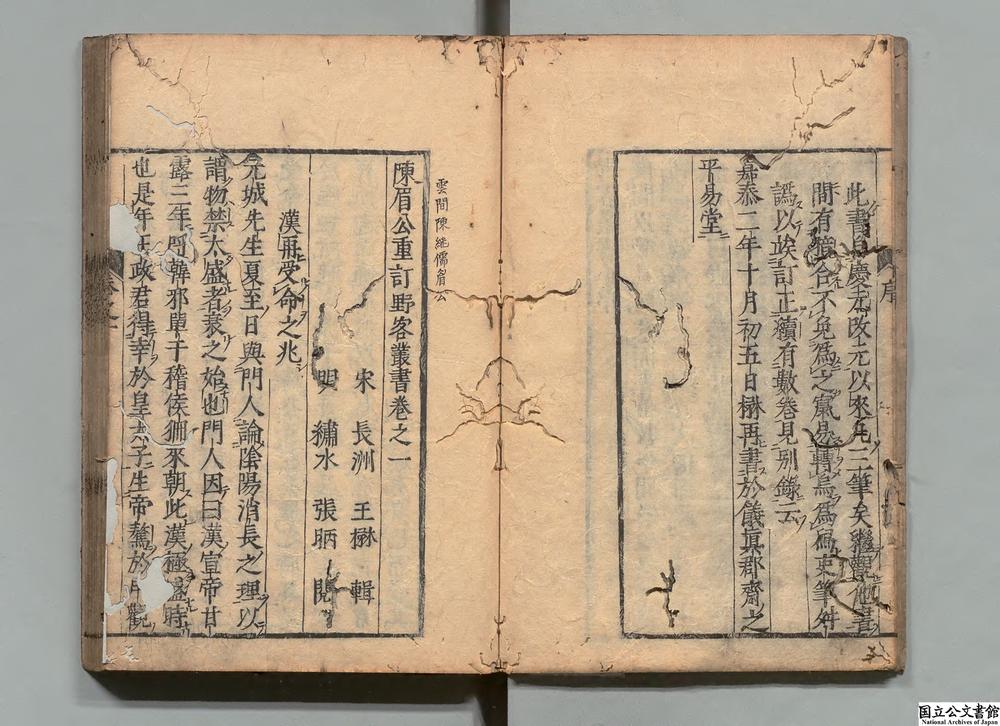 此書自慶元改元以來凡三筆矣繼觀他書
間有暗合不免為之竄易轉烏為焉吏筆舛
譌以竢訂正續有數卷見別錄云
嘉泰二年十月初五日楙再書於儀真郡齋之
平易堂
序
雲間陳繼儒眉公
陳眉公重訂野客叢書卷之一
宋 長洲 王楙 輯
明 繡水 張昞 閱
漢再受命之兆
元城先生夏至日與門人論陰陽消長之理以
謂物禁太盛者衰之始也門人因曰漢宣帝甘
露三年呼韓邪單于稽侯狦來朝此漢極盛時
也是年王政君得幸於皇太子生帝驁於甲觀
卷之一
国立公文書館
National Archives of Japan